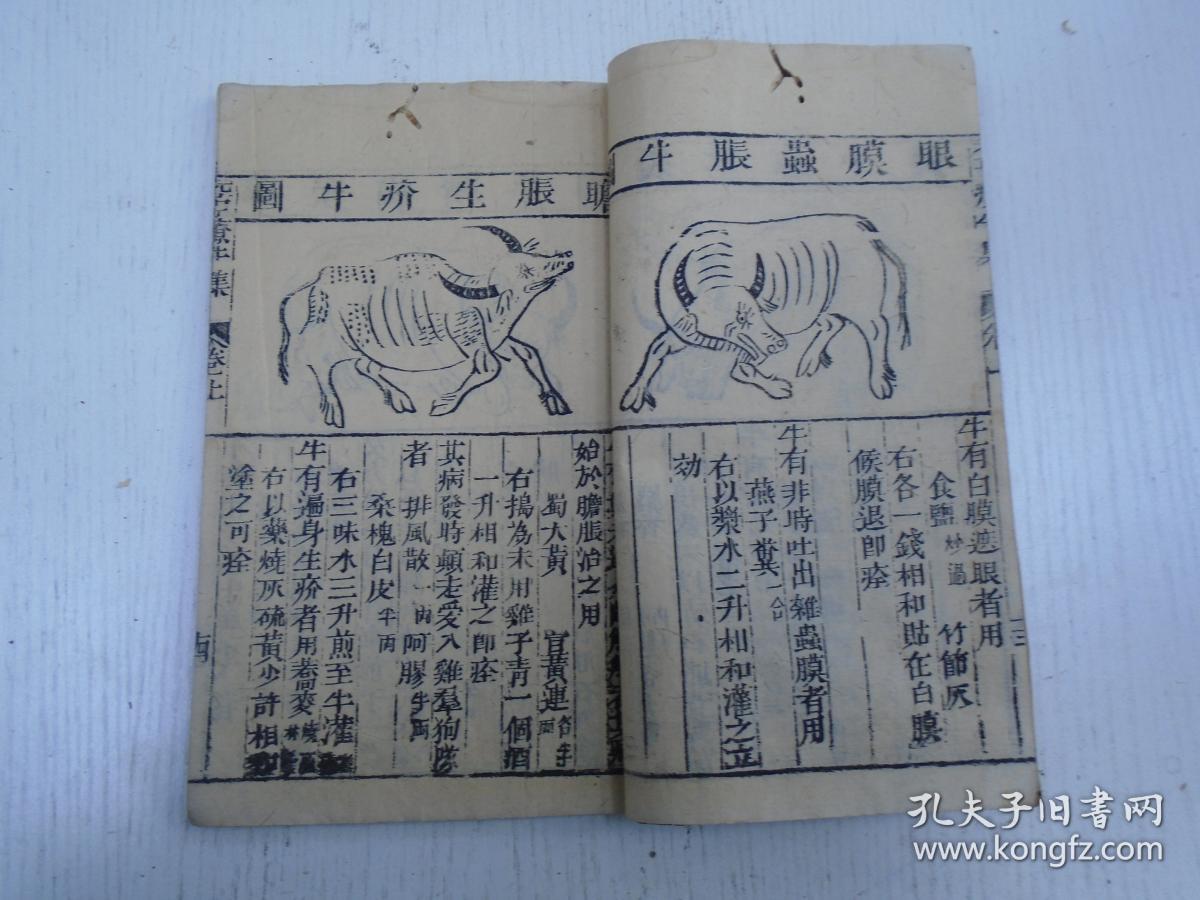 眼膜蟲脹牛
牛有白膜遮眼者用
食鹽炒過 竹節灰
右各一錢相和貼在白膜
候膜退即痊
牛有非時吐出雜蟲膜者用
燕子糞一合
右以漿水二升相和灌之立
効
膽脹生疥牛圖
始於膽脹治之用
蜀大黃 官黃連各半兩
右搗為末用雞子青一個酒
一升相和灌之即痊
其病發時顛走愛入雞羣狗隊
者 排風散一兩 阿膠半兩
桑槐白皮半兩
右三味水三升煎至牛灌
牛有遍身生疥者用蕎麥
右以藥燒灰硫黃少許相
塗之可痊
療牛集
卷上
四
孔夫子旧书网
www.kongfz.com